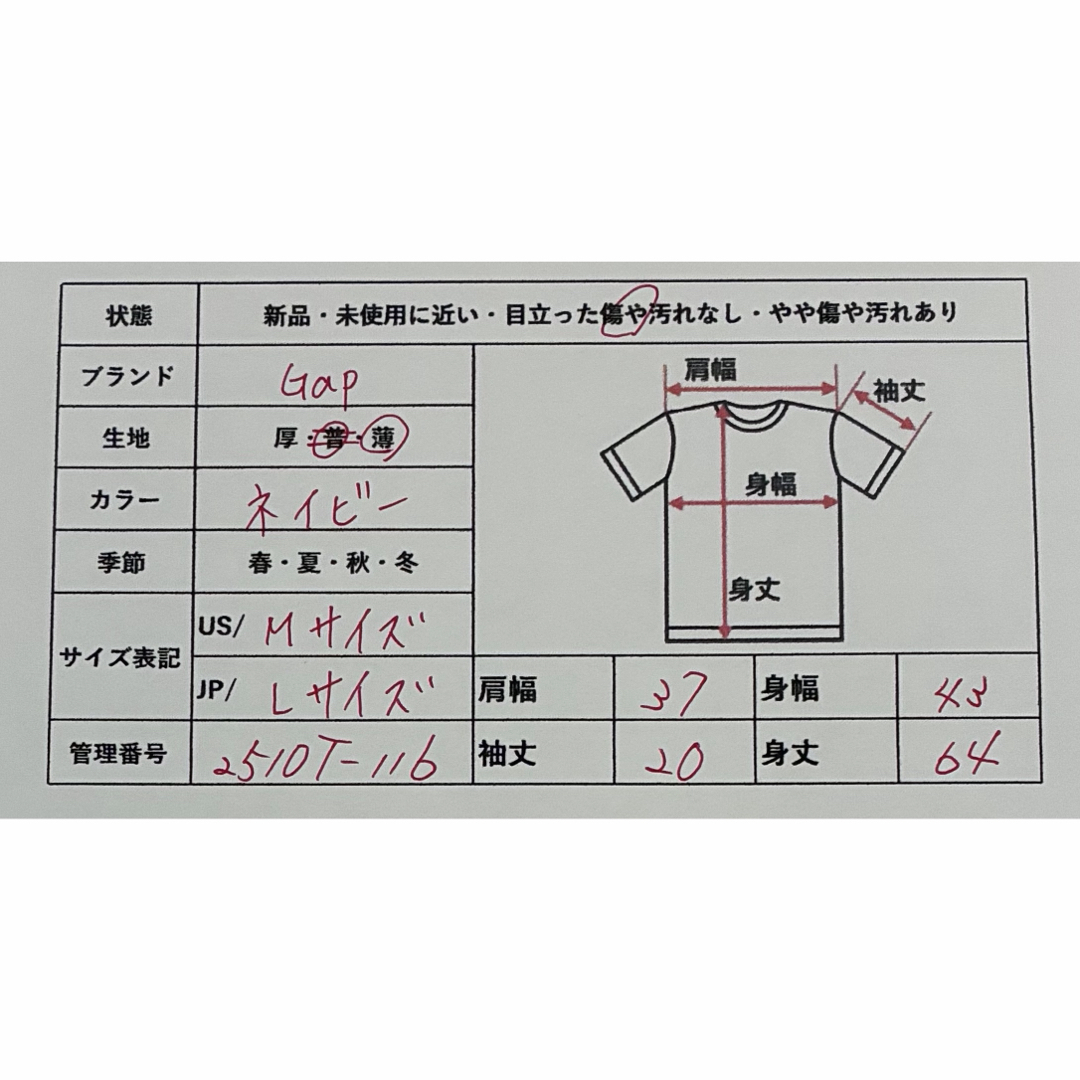 状態 新品・未使用に近い・目立った傷や汚れなし・やや傷や汚れあり
ブランド Gap
生地 厚・普・薄
カラー ネイビー
季節 春・夏・秋・冬
サイズ表記
US/ Mサイズ
JP/ Lサイズ
管理番号 2510T-116
肩幅
袖丈
身幅
身丈
肩幅 37 身幅 43
袖丈 20 身丈 64